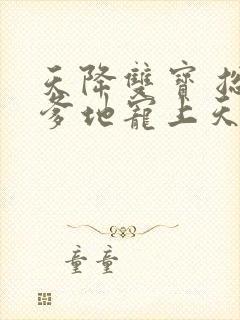 天降雙寶 總
爹地寵上天
童童